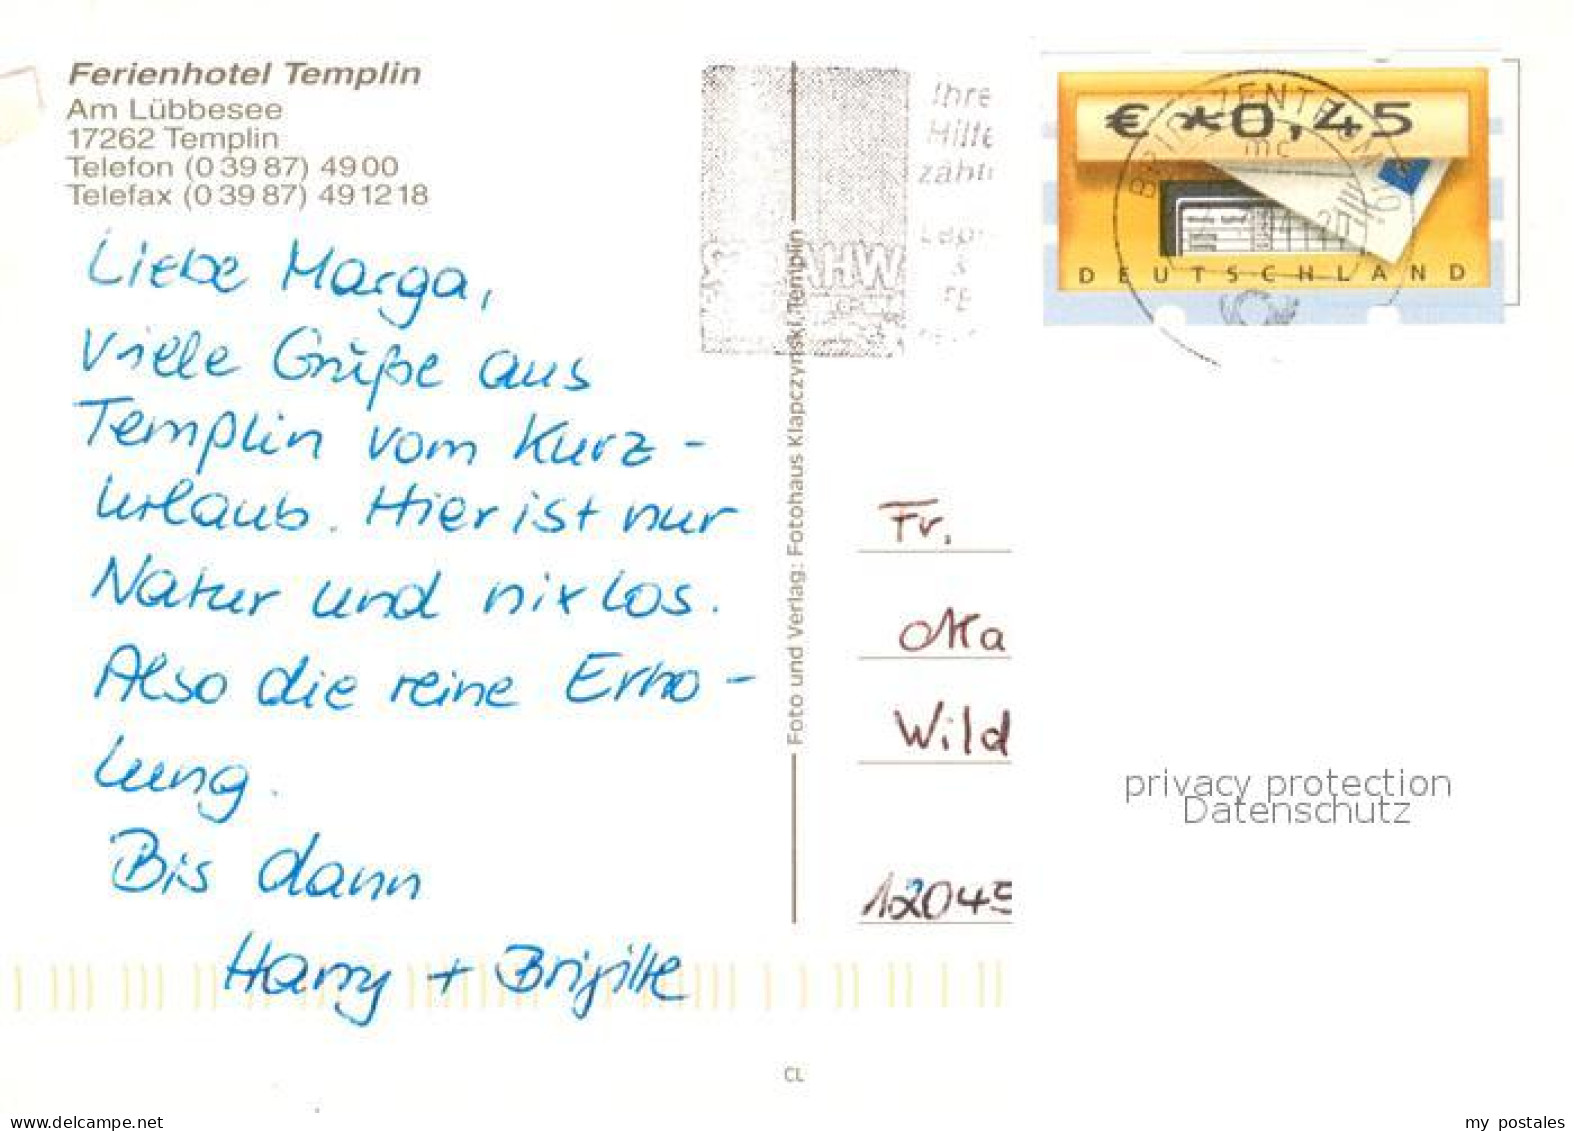 Ferienhotel Templin
Am Lübbesee
17262 Templin
Telefon (0 39 87) 49 00
Telefax (0 39 87) 49 12 18
Liebe Marga,
Viele Grüße aus
Templin vom Kurz-
urlaub. Hier ist nur
Natur und nix los.
Also die reine Erho-
lung.
Bis dann
Harry + Brigitte
Foto und Verlag: Fotohaus Klapczynski, Templin
CL
Ihre
Hilfe
zählt
€ *0,45
DEUTSCHLAND
BRIEFZENTRUM
mc
Fr.
Ma
Wild
12045
privacy protection
Datenschutz
www.delcampe.net
my postales